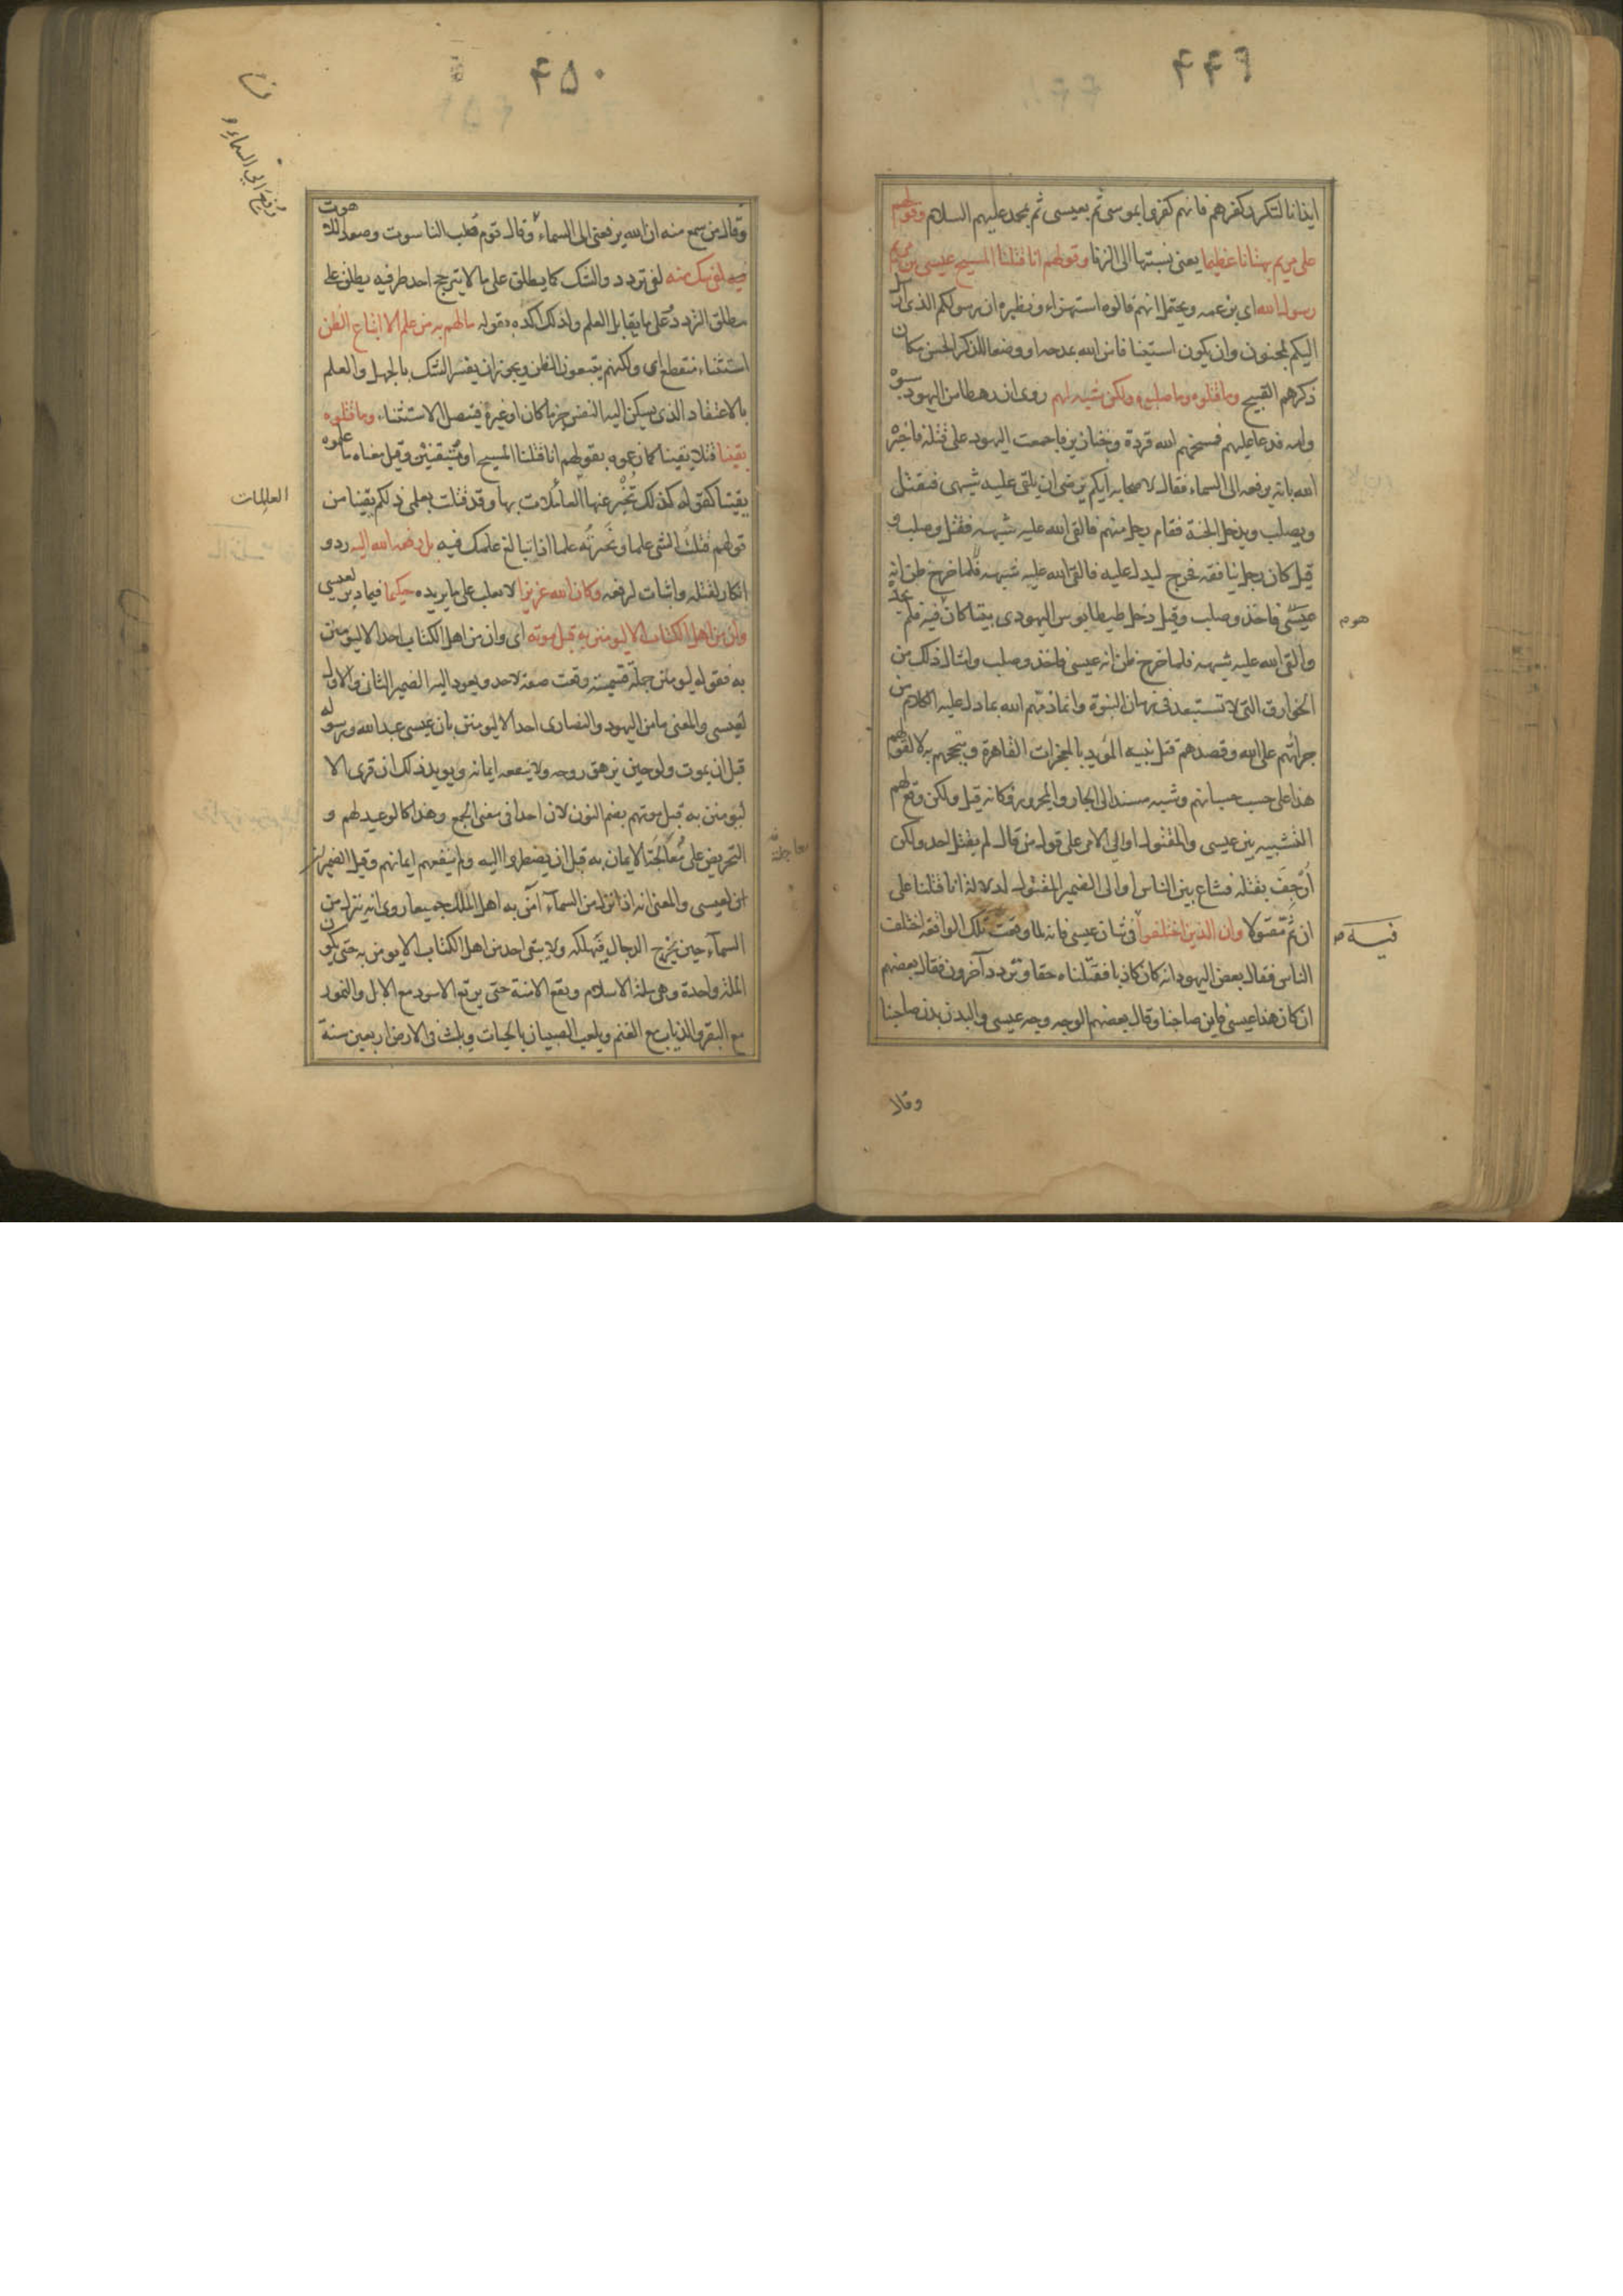 ۴۴۹
ايذانا لتكرر كفرهم فانهم كفروا بموسى ثم بعيسى ثم بمحمد عليهم السلام وقولهم
على مريم بهتانا عظيما يعنى نسبتها الى الزنا وقولهم انا قتلنا المسيح عيسى بن مريم
رسول الله اى بزعمه ويحتمل انهم قالوه استهزاء ونظيره ان رسولكم الذى ارسل
اليكم لمجنون وان يكون استينافا من الله بمدحه او وضعا للذكر الحسن مكان
ذكرهم القبيح وما قتلوه وما صلبوه ولكن شبه لهم روى ان رهطا من اليهود سبوه
وامه فدعا عليهم فمسخهم الله قردة وخنازير فاجمعت اليهود على قتله فاخبره
الله بانه يرفعه الى السماء فقال لاصحابه ايكم يرضى ان يلقى عليه شبهى فيقتل
ويصلب ويدخل الجنة فقام رجل منهم فالقى الله عليه شبهه فقتل وصلب و
قيل كان رجلا ينافقه فخرج ليدل عليه فالقى الله عليه شبهه فلما خرج ظن انه
عيسى فاخذ وصلب وقيل دخل طيطايوس اليهودى بيتا كان فيه فلم يجده
هوم
والقى الله عليه شبهه فلما خرج ظن انه عيسى فاخذ وصلب وامثال ذلك من
الخوارق التى لا تستبعد فى زمان النبوة وانما ذمهم الله بما دل عليه الكلام من
جراتهم على الله وقصدهم قتل نبيه المؤيد بالمعجزات القاهرة وتبجحهم به لا لقولهم
هذا على حسب حسبانهم وشبه مسند الى الجار والمجرور وكانه قيل ولكن وقع لهم
التشبيه بين عيسى والمقتول او الى الامر على قول من قال لم يقتل احد ولكن
ارجف بقتله فشاع بين الناس او الى الضمير المقتول لدلالة انا قتلنا على
ان ثم مقتولا وان الذين اختلفوا فى شان عيسى فانه لما وقعت تلك الواقعة اختلف
فيه ص
الناس فقال بعض اليهود انه كان كاذبا فقتلناه حقا وتردد آخرون فقال بعضهم
ان كان هذا عيسى فاين صاحبنا وقال بعضهم الوجه وجه عيسى والبدن بدن صاحبنا
وقال
۴۵۰
رفع الى السماء و
وقال من سمع منه ان الله يرفعنى الى السماء وقال قوم صلب الناسوت وصعد اللاهوت
فيه لفى شك منه لفى تردد والشك كما يطلق على ما لا يترجح احد طرفيه يطلق على
مطلق التردد وعلى ما يقابل العلم ولذلك اكده بقوله ما لهم به من علم الا اتباع الظن
استثناء منقطع اى ولكنهم يتبعون الظن ويجوز ان يفسر الشك بالجهل والعلم
بالاعتقاد الذى يسكن اليه النفس جزما كان او غيره فيتصل الاستثناء وما قتلوه
يقينا قتلا يقينا كما زعموه بقولهم انا قتلنا المسيح او متيقنين وقيل معناه ما علموه
يقينا كقوله كذلك تخبر عنها العاملات بها وقد قتلت بعلمى ذلكم يقينا من
العالمات
قولهم قتلت الشى علما ونحرته علما اذا تبالغ علمك فيه بل رفعه الله اليه رد و
انكار لقتله واثبات لرفعه وكان الله عزيزا لا يغلب على ما يريده حكيما فيما دبر لعيسى
وان من اهل الكتاب الا ليومنن به قبل موته اى وان من اهل الكتاب احد الا ليومنن
به فقوله ليومنن جملة قسمية وقعت صفة لاحد ويعود اليه الضمير الثانى والاول
لعيسى والمعنى ما من اليهود والنصارى احد الا ليومنن بان عيسى عبد الله ورسوله
قبل ان يموت ولو حين يزهق روحه ولا ينفعه ايمانه ويويد ذلك ان قرى الا
ليومنن به قبل موتهم بضم النون لان احدا فى معنى الجمع وهذا كالوعيد لهم و
التحريض على معالجة الايمان به قبل ان يضطروا اليه ولم ينفعهم ايمانهم وقيل الضميران
معاجلة
لعيسى والمعنى انه اذا نزل من السماء آمن به اهل الملل جميعا روى انه ينزل من
السماء حين يخرج الدجال فيهلكه ولا يبقى احد من اهل الكتاب الا يومن به حتى يكون
الملة واحدة وهى ملة الاسلام ويقع الامنة حتى يرتع الاسود مع الابل والنمور
مع البقر والذياب مع الغنم ويلعب الصبيان بالحيات ويلبث فى الارض اربعين سنة